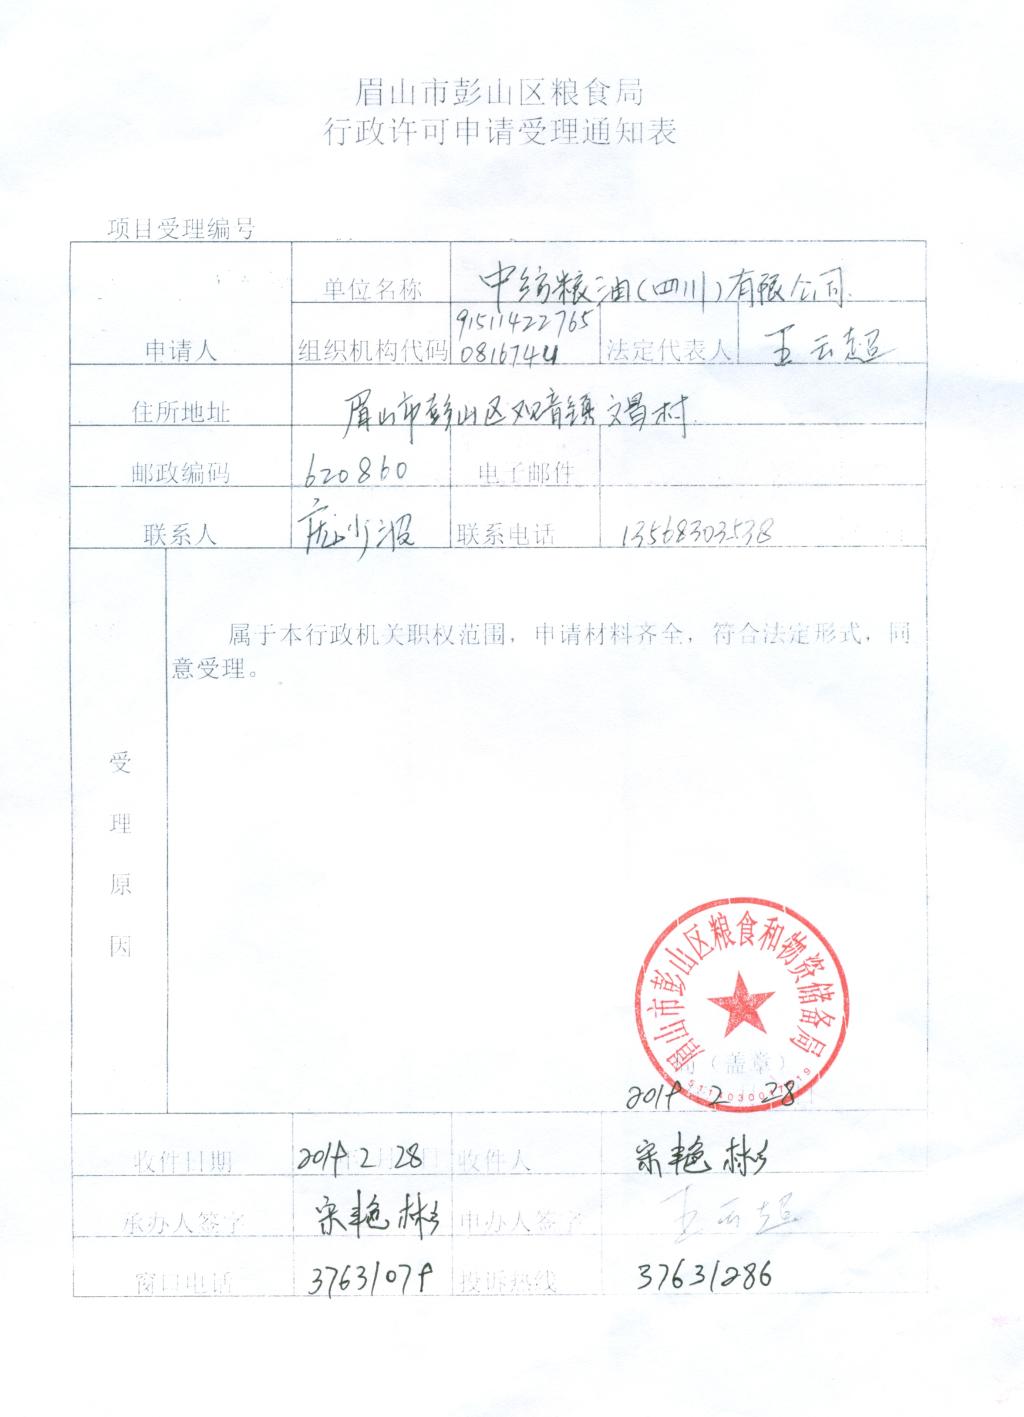 眉山市彭山区粮食局
行政许可申请受理通知表
项目受理编号
申请人 单位名称 中纺粮油(四川)有限公司
组织机构代码 91511422765
0816744 法定代表人 王云超
住所地址 眉山市彭山区观音镇文昌村
邮政编码 620860 电子邮件
联系人 庞少波 联系电话 13568303538
受理原因
属于本行政机关职权范围，申请材料齐全，符合法定形式，同
意受理。
眉山市彭山区粮食和物资储备局
（盖章）
2019 2 28
收件日期 2019 2 28 收件人 宋艳彬
承办人签字 宋艳彬 申办人签字 王云超
窗口电话 37631079 投诉热线 37631286